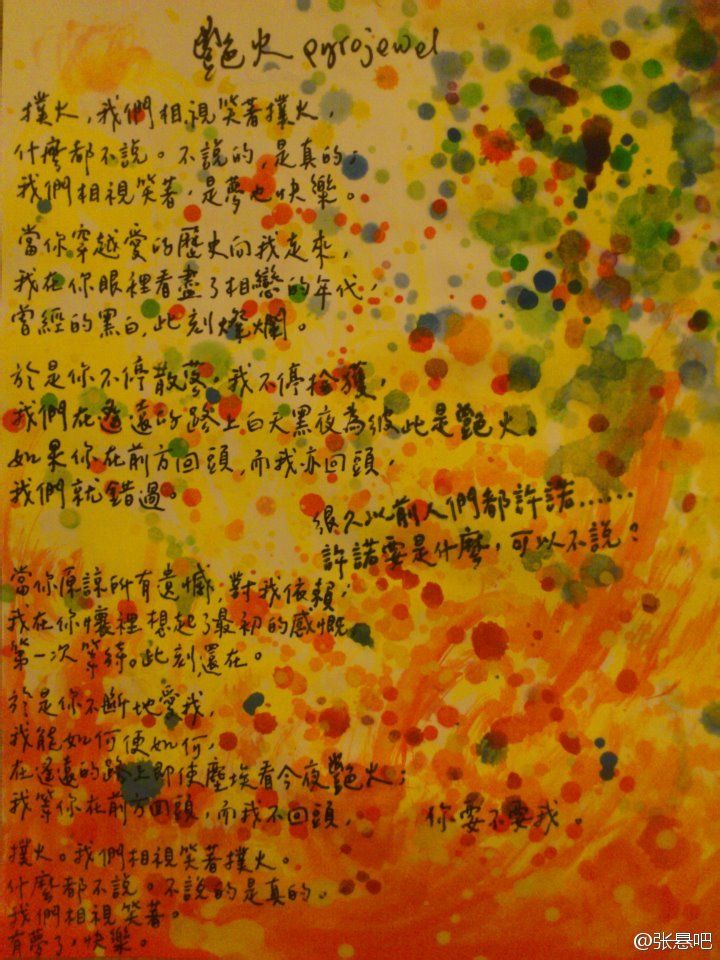 艷火 pyrojewel
撲火，我們相視笑著撲火，
什麼都不說。不說的，是真的；
我們相視笑著，是夢也快樂。
當你穿越愛的歷史向我走來，
我在你眼裡看盡了相戀的年代，
曾經的黑白，此刻燦爛。
於是你不停散落，我不停拾獲，
我們在遙遠的路上白天黑夜為彼此是艷火。
如果你在前方回頭，而我亦回頭，
我們就錯過。
很久以前人們都許諾......
許諾要是什麼，可以不說？
當你原諒所有遺憾，對我依賴，
我在你懷裡想起了最初的感慨
第一次等待。此刻，還在。
於是你不斷地愛我，
我能如何便如何，
在遙遠的路上即使塵埃看今夜艷火；
我等你在前方回頭，而我不回頭，
你要不要我。
撲火。我們相視笑著撲火。
什麼都不說。不說的是真的。
我們相視笑著。
有夢了，快樂。
@张悬吧